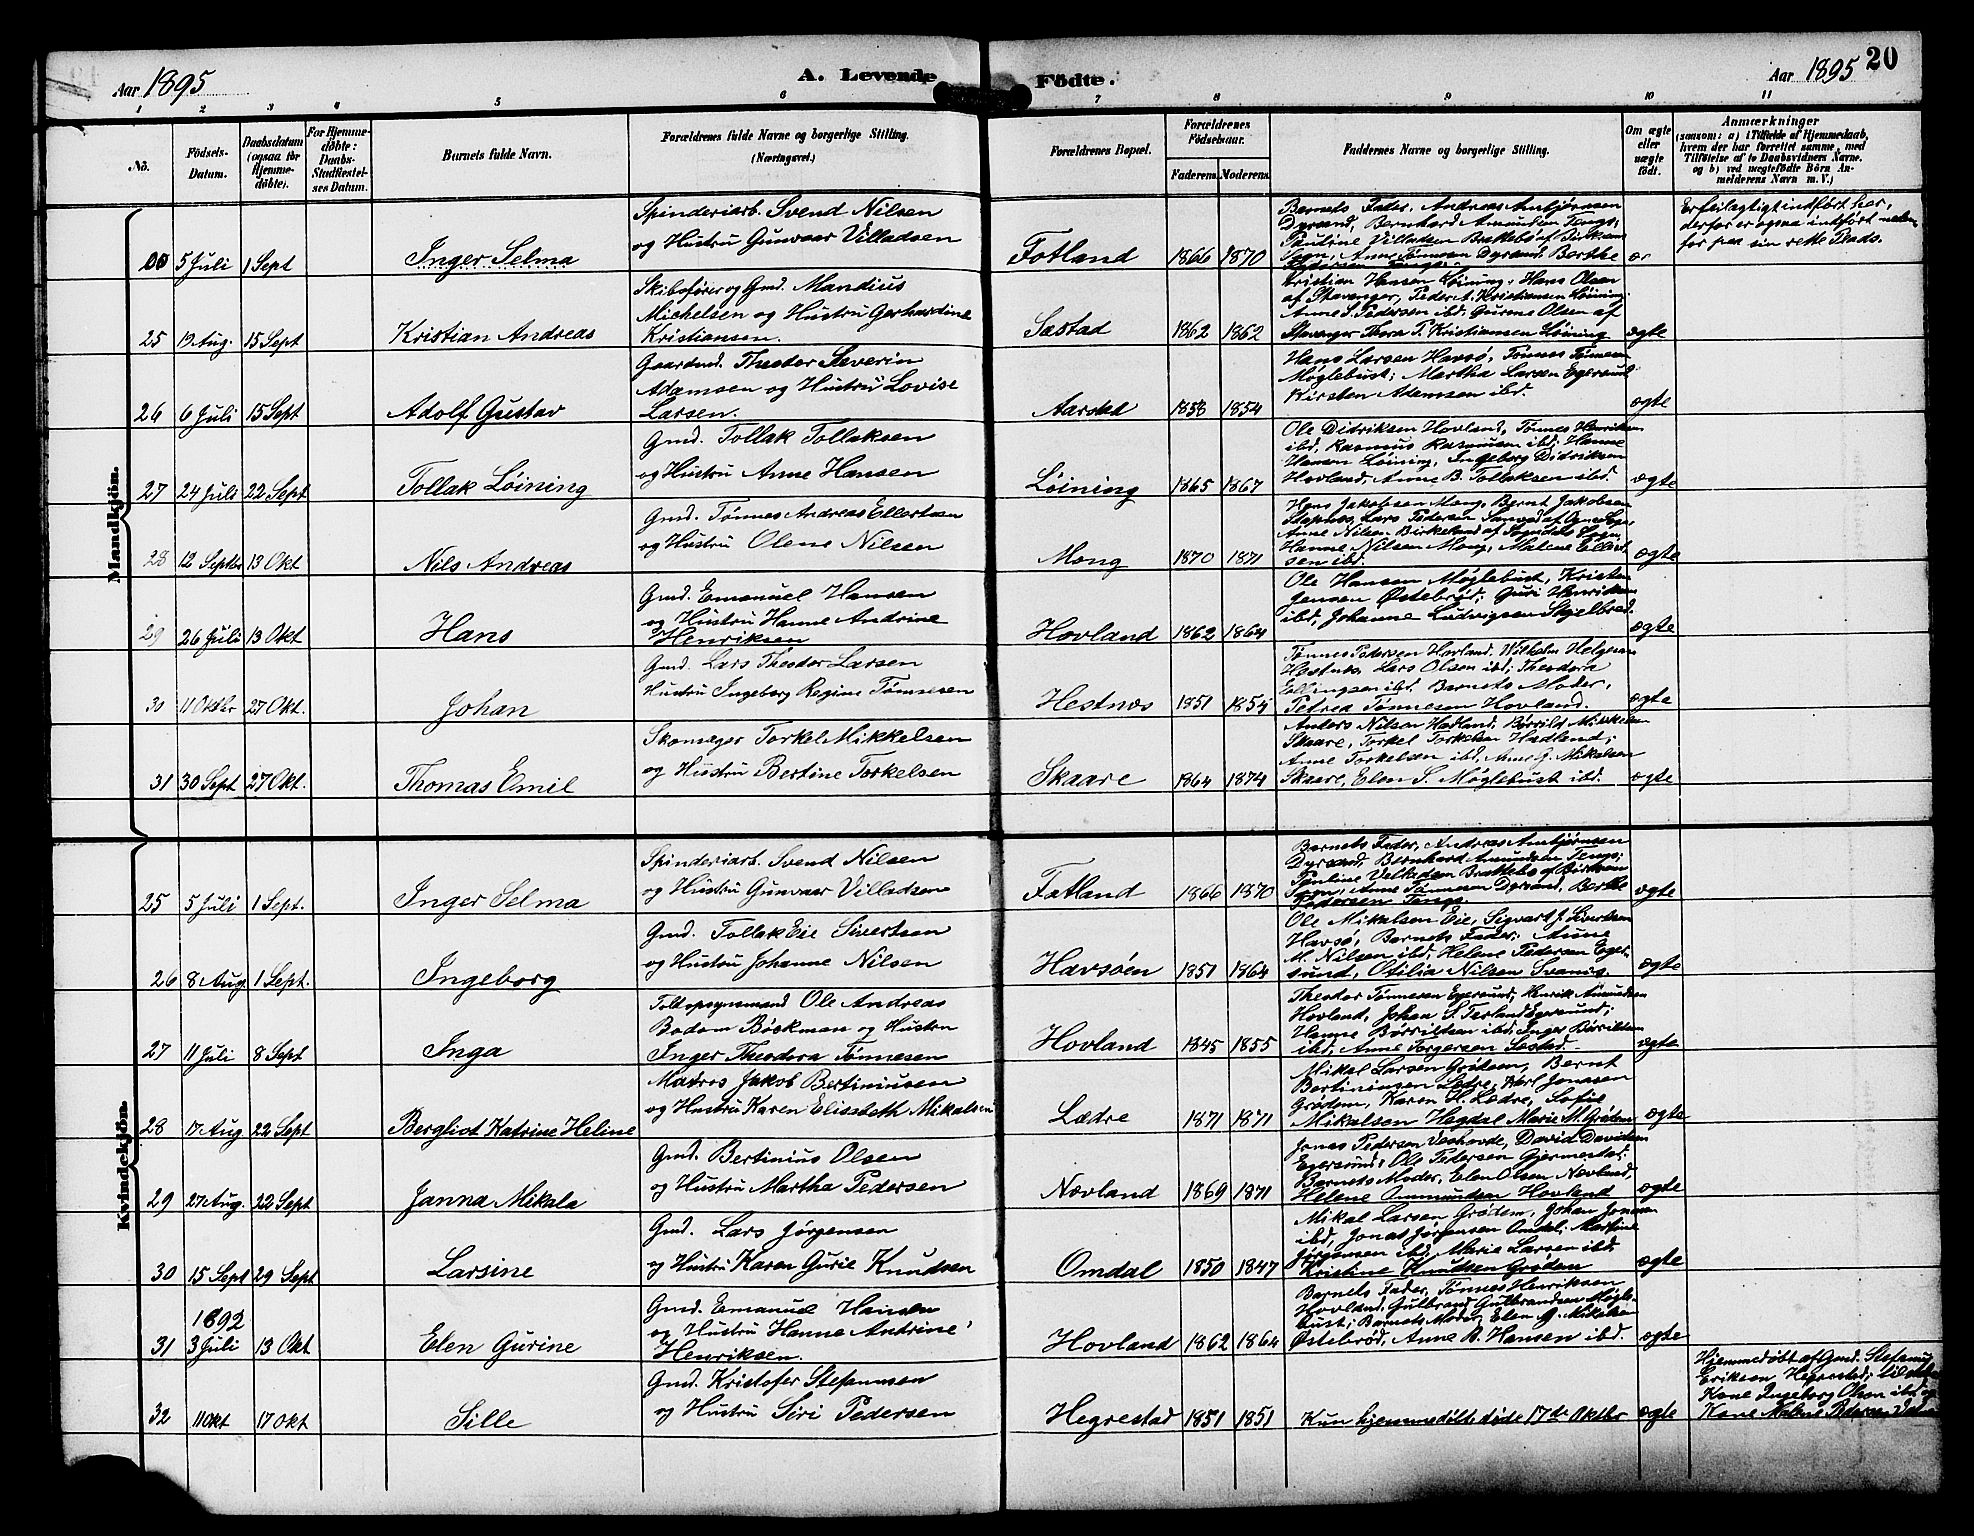 Aar 1895
A. Levende Födte.
Aar 1895 20
1 2 3 4 5 6 7 8 9 10 11
No.
Födsels-Datum.
Daabsdatum (ogsaa for Hjemme-döbte).
For Hjemme-döbte: Daabs-Stadfæstel-ses Datum.
Barnets fulde Navn.
Forældrenes fulde Navne og borgerlige Stilling.
(Næringsvei.)
Forældrenes Bopæl.
Forældrenes Födselsaar.
Faderens. Moderens.
Faddernes Navne og borgerlige Stilling.
Om ægte eller uægte födt.
Anmærkninger
(saasom: a) i Tilfælde af Hjemmedaab,
hvem der har forrettet samme, med
Tilföielse af to Daabsvidners Navne.
og b) ved uægtefödte Börn An-
melderens Navn m. V.)
Mandkjön.
00 5 Juli 1 Sept Inger Selma
Spinderiarb. Svend Nilsen
og Hustru Gunvaar Villadsen
Fotland 1866 1870
Barnets Fader, Andreas Ambjörnsen
Dyrsand, Bernhard Amundsen Tengs,
Pauline Villadsen Brattebö af Birkrem
Sogn, Anne Tönnesen Dyrsand, Berthe
Pedersen Tengs.
Er feilagtigt indfört her,
derfor er ogsaa indfört neden-
for paa sin rette Plads.
25 19 Aug. 15 Sept Kristian Andreas
Skibsförer og Gmd. Mandius
Michelsen og Hustru Gerhardine
Kristiansen.
Sæstad 1862 1862
Kristian Hansen Löining, Hans Olsen
af Stavanger, Peder A. Kristiansen Löining.
Anne S. Pedersen ibd. Gurine Olsen af
Stavanger Thora P. Kristiansen Löining
ægte
26 6 Juli 15 Sept Adolf Gustav
Gaardmd. Theodor Severin
Adamsen og Hustru Lovise
Larsen.
Aarstad 1858 1854
Hans Larsen Havsö, Tönnes Tönnesen
Möglebust; Martha Larsen Egersund
Kirsten Adamsen ibd.
ægte
27 24 Juli 22 Sept Tollak Löining
Gmd. Tollak Tollaksen
og Hustru Anne Hansen
Löining 1865 1867
Ole Didriksen Hovland, Tönnes Henriksen
ibd, Rasmus Rasmusen ibd, Hanne
Hansen Löining, Ingeborg Didriksen
Hovland, Anne B. Tollaksen ibd.
ægte
28 12 Septbr 13 Okt Nils Andreas
Gmd. Tönnes Andreas Ellertsen
og Hustru Olene Nilsen
Mong 1870 1871
Hans Jakobsen Mong, Bernt Jakobsen
Stapnes, Lars Pedersen
Anne Nilsen Birkeland af Sogndals Sogn,
Hanne Nilsen Mong, Malene Ellert-
sen ibd.
ægte
29 26 Juli 13 Okt Hans
Gmd. Emanuel Hansen
og Hustru Hanne Andrine
Henriksen
Hovland 1862 1864
Ole Hansen Möglebust, Kristen
Jensen Östebröd; Guri Henriksen
ibd, Johanne Ludvigsen
ægte
30 11 Oktbr 27 Okt. Johan
Gmd. Lars Theodor Larsen
Hustru Ingeborg Regine Tönnesen
Hestnes 1851 1854
Tönnes Pedersen Hovland. Wilhelm Helgesen
Hestnes, Lars Olsen ibd; Theodora
Ellingsen ibd. Barnets Moder,
Petrea Tönnesen Hovland.
ægte
31 30 Sept 27 Okt. Thomas Emil
Skomager Torkel Mikkelsen
og Hustru Bertine Torkelsen
Skaare 1864 1874
Anders Nilsen Hadland, Börrild Mikkelsen
Skaare, Torkel Torkelsen Hadland;
Anne Torkelsen ibd, Anne G. Mikalsen
Skaare, Elen S. Möglebust ibd.
ægte
Kvindekjön.
25 5 Juli 1 Sept. Inger Selma
Spinderiarb. Svend Nilsen
og Hustru Gunvaar Villadsen
Fotland 1866 1870
Barnets Fader, Andreas Ambjörnsen
Dyrsand, Bernhard Amundsen Tengs;
Pauline Brattebö af Birkrem
Sogn, Anne Tönnesen Dyrsand, Berthe
Pedersen Tengs.
ægte
26 8 Aug 1 Sept. Ingeborg
Gmd. Tollak Eie Sivertsen
og Hustru Johanne Nilsen
Havsöen 1851 1864
Ole Mikalsen Eie, Sigvart J. Sivertsen
Havsö, Barnets Fader; Anne
M. Nilsen ibd, Helene Pedersen Eger-
sund, Otilia Nilsen Svanes.
ægte
27 11 Juli 8 Sept Inga
Toldopsynsmand Ole Andreas
Bodom Böckman og Hustru
Inger Theodora Tönnesen
Hovland 1845 1855
Theodor Tönnesen Egersund, Henrik Amundsen
Hovland, Johan S. Terland Egersund;
Hanne Börrildsen ibd, Inger Börrildsen
ibd, Anne Torgersen Sæstad.
ægte
28 17 Aug 22 Sept Bergliot Katrine Heline
Matros Jakob Bertiniusen
og Hustru Karen Elisabeth Mikalsen
Lædre 1871 1871
Mikal Larsen Grödem, Bernt
Bertiniusen Lædre, Karl Jonassen
Grödem, Karen H. Lædre, Sofie
Mikalsen Hegdal Marie M. Grödem
ægte
29 27 Aug. 22 Sept Janna Mikala
Gmd. Bertinius Olsen
og Hustru Martha Pedersen
Nævland 1869 1871
Jonas Pedersen Veshovde, David Davidsen
Egersund, Ole Pedersen Gjermestad.
Barnets Moder, Elen Olsen Nævland,
Helene Ommundsen Hovland
ægte
30 15 Sept 29 Sept Larsine
Gmd. Lars Jörgensen
og Hustru Karen Gurie Knudsen
Omdal 1850 1847
Mikal Larsen Grödem, Johan Jonassen
ibd, Jonas Jörgensen Omdal; Martine
Jörgensen ibd, Marie Larsen ibd.
Kristine Knudsen Grödem
ægte
31 1892 3 Juli 13 Okt Elen Gurine
Gmd. Emanuel Hansen
og Hustru Hanne Andrine
Henriksen.
Hovland 1862 1864
Barnets Fader, Tönnes Henriksen
Hovland. Gulbrand Gulbrandsen Mögle-
bust; Barnets Moder, Elen M. Mikalsen
Östebröd, Anne B. Hansen ibd.
ægte
32 11 Okt 17 Okt Sille
Gmd. Kristofer Stefansen
og Hustru Siri Pedersen
Hegrestad 1851 1851
Kun hjemmedöbt döde 17de Oktbr
ægte
Hjemmedöbt af Gmd. Stefanus
Eriksen Hegrestad;
Kone Ingeborg Olsen ibd og
Kone Malene Pedersen